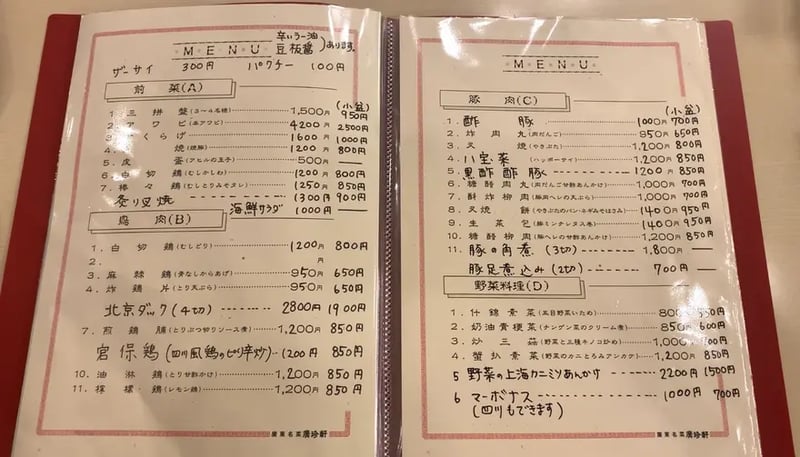 MENU 辛いラー油 豆板醤 あります。
ザーサイ 300円 パクチー 100円
前菜(A) (小盆)
1. 三拼盤(3～4名様) 1,500円 950円
2. アワビ 4200円 2500円
3. くらげ 1600円 1000円
4. 焼(焼豚) 1200円 800円
5. 皮蛋(アヒルの玉子) 500円 —
6. 白切鶏(むしかしわ) 1200円 800円
7. 棒々鶏(むしとりみそタレ) 1250円 850円
炙り叉焼 1300円 900円
海鮮サラダ 1000円 —
鳥肉(B)
1. 白切鶏(むしどり) 1200円 800円
2. 円
3. 麻辣鶏(骨なしからあげ) 950円 650円
4. 炸鶏片(とり天ぷら) 950円 650円
北京ダック(4切) 2800円 1900円
7. 煎鶏脯(とりぶつ切りソース煮) 1,200円 850円
宮保鶏(四川風鶏のピリ辛炒) 1200円 850円
10. 油淋鶏(とり甘酢かけ) 1,200円 850円
11. 檸檬鶏(レモン鶏) 1,200円 850円
廣東名菜 廣珍軒
MENU
豚肉(C) (小盆)
1. 酢豚 1000円 700円
2. 炸肉丸(肉だんご) 950円 650円
3. 叉焼(やきぶた) 1,200円 800円
4. 八宝菜(ハッポーサイ) 1,200円 850円
5. 黒酢酢豚 1200円 850円
6. 糖醋肉丸(肉だんご甘酢あんかけ) 1,000円 700円
7. 酥炸柳肉(豚肉ヘレの天ぷら) 1,000円 700円
8. 叉焼餅(やきぶたのパン・ネギみそはさみ) 1400円 950円
9. 生菜包(豚ミンチレタス巻) 1400円 950円
10. 糖醋柳肉(豚ヘレの甘酢あんかけ) 1,200円 850円
11. 豚の角煮(3切) 1,800円 —
豚足煮込み(2切) 700円 —
野菜料理(D)
1. 什錦素菜(五目野菜いため) 800円 550円
2. 奶油青梗菜(チンゲン菜のクリーム煮) 850円 600円
3. 炒三菇(野菜と三種キノコ炒め) 1,000円 700円
4. 蟹扒素菜(野菜のカニとろみアンカケ) 1,200円 850円
5 野菜の上海カニミソあんかけ 2200円 1500円
6 マーボナス 1000円 700円
(四川もできます)
廣東名菜 廣珍軒